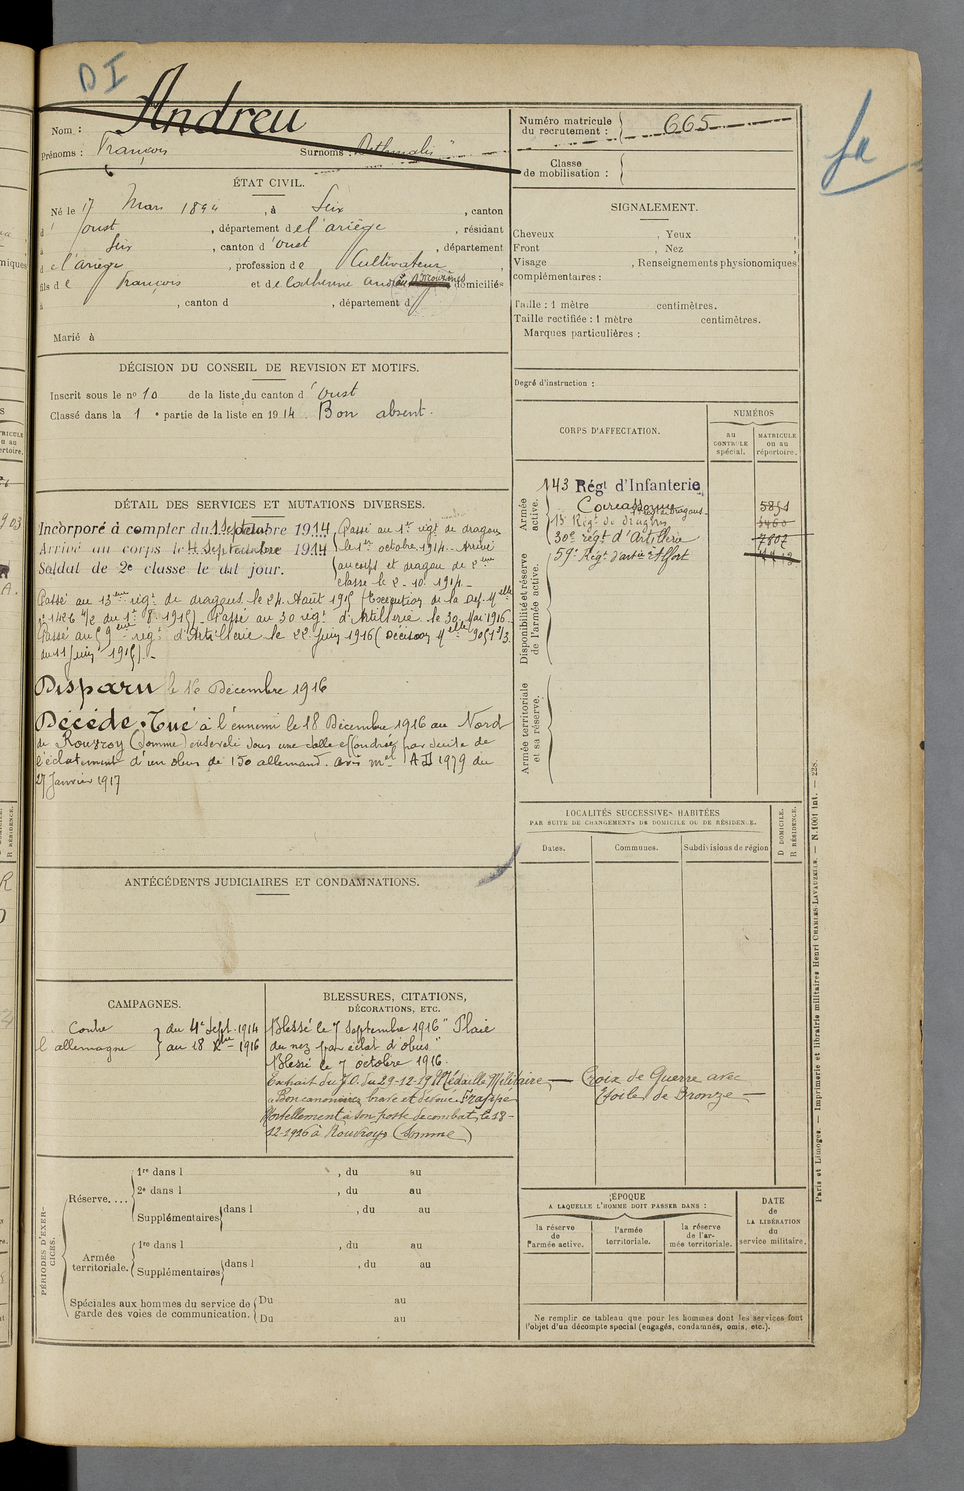 DI
Nom : Andreu
Prénoms : François Surnoms :
Numéro matricule du recrutement : 665
Classe de mobilisation :
ÉTAT CIVIL.
Né le 17 Mars 1894, à Seix, canton
d'Oust, département de l'ariège, résidant
à Seix, canton d'Oust, département
de l'ariège, profession de Cultivateur,
fils de François et de Catherine domiciliés
à , canton d , département d
Marié à
SIGNALEMENT.
Cheveux , Yeux ,
Front , Nez ,
Visage , Renseignements physionomiques
complémentaires :
Taille : 1 mètre centimètres.
Taille rectifiée : 1 mètre centimètres.
Marques particulières :
Degré d'instruction :
DÉCISION DU CONSEIL DE REVISION ET MOTIFS.
Inscrit sous le n° 10 de la liste du canton d'Oust
Classé dans la 1e partie de la liste en 1914 Bon absent.
DÉTAIL DES SERVICES ET MUTATIONS DIVERSES.
Incorporé à compter du 1 Septembre 1914
Arrivé au corps le 4 Septembre 1914
Soldat de 2e classe le dit jour.
Passé au 1er régt de dragons
le 1er octobre 1914. Arrivé
au corps et dragon de 2eme
classe le 2-10-1914.-
Passé au 13eme régt de dragons le 24 Août 1915 (Exécution de la Dep. Melle
n° 1426 du 1er 8 1915). Passé au 30 régt d'Artillerie le 30 Mai 1916.
Passé au 59eme régt d'Artillerie le 22 Juin 1916 (Décision Melle 9051 2/3
du 11 Juin 1915).-
Disparu le 18 Décembre 1916
Décédé. Tué à l'ennemi le 18 Décembre 1916 au Nord
de Rouvroy (Somme) enseveli sous une dalle effondrée par suite de
l'éclatement d'un obus de 150 allemand. avis mel AD 1979 du
27 Janvier 1917
CORPS D'AFFECTATION.
NUMÉROS
au CONTROLE spécial.
MATRICULE ou au répertoire.
Armée active.
Disponibilité et réserve de l'armée active.
Armée territoriale et sa réserve.
143 Régt d'Infanterie
Carcassonne 5851
13e Régt de dragons 3460
30e régt d'Artillerie 7802
59e Régt d'artie
LOCALITÉS SUCCESSIVES HABITÉES
PAR SUITE DE CHANGEMENTS DE DOMICILE OU DE RÉSIDENCE.
Dates. Communes. Subdivisions de région
D DOMICILE.
R RÉSIDENCE.
ANTÉCÉDENTS JUDICIAIRES ET CONDAMNATIONS.
CAMPAGNES.
Contre l'allemagne
du 4 Sept. 1914
au 18 Xbre 1916
BLESSURES, CITATIONS,
DÉCORATIONS, ETC.
Blessé le 7 Septembre 1916 "Plaie
du nez par éclat d'obus"
Blessé le 7 octobre 1916.
Extrait du J.O. du 29-12-19 Médaille Militaire
"Bon canonnier, brave et dévoué. Frappé
Mortellement à son poste de combat, le 18-
12-1916 à Rouvroy (Somme)
Croix de Guerre avec
Etoile de Bronze
PÉRIODES D'EXERCICES.
Réserve....
1re dans l , du au
2e dans l , du au
Supplémentaires dans l , du au
Armée territoriale.
1re dans l , du au
Supplémentaires dans l , du au
Spéciales aux hommes du service de garde des voies de communication.
Du au
Du au
ÉPOQUE
A LAQUELLE L'HOMME DOIT PASSER DANS :
la réserve de l'armée active.
l'armée territoriale.
la réserve de l'armée territoriale.
DATE de LA LIBÉRATION du service militaire.
Ne remplir ce tableau que pour les hommes dont les services font
l'objet d'un décompte spécial (engagés, condamnés, omis, etc.).
Paris et Limoges. — Imprimerie et librairie militaires Henri CHARLES-LAVAUZELLE. — N. 1001 int. — 228.